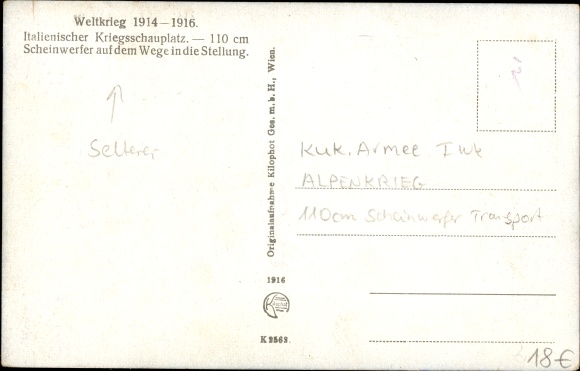 Weltkrieg 1914–1916.
Italienischer Kriegsschauplatz. — 110 cm
Scheinwerfer auf dem Wege in die Stellung.
Seltener
Originalaufnahme Kilophot Ges. m. b. H., Wien.
1916
K 2563
KuK. Armee I WK
ALPENKRIEG
110cm Scheinwerfer Transport
18€